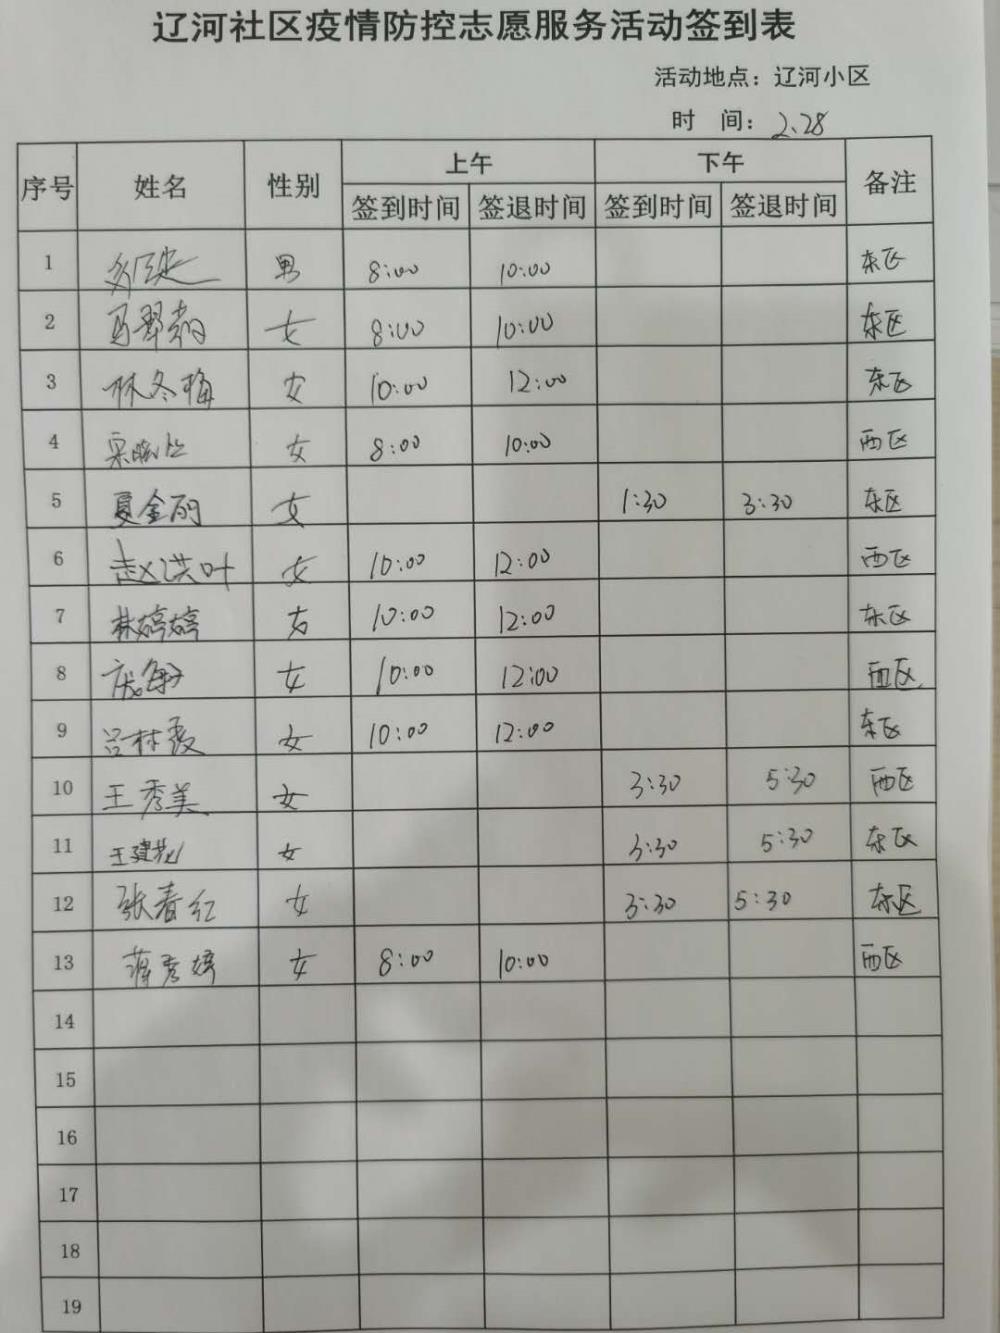 辽河社区疫情防控志愿服务活动签到表
活动地点：辽河小区
时 间：2、28
序号 姓名 性别 上午 下午 备注
签到时间 签退时间 签到时间 签退时间
1 男 8:00 10:00 东区
2 女 8:00 10:00 东区
3 林冬梅 女 10:00 12:00 东区
4 女 8:00 10:00 西区
5 夏金丽 女 1:30 3:30 东区
6 赵洪叶 女 10:00 12:00 西区
7 林婷婷 女 10:00 12:00 东区
8 女 10:00 12:00 西区
9 吕林霞 女 10:00 12:00 东区
10 王秀美 女 3:30 5:30 西区
11 女 3:30 5:30 东区
12 张春红 女 3:30 5:30 东区
13 蒋秀婷 女 8:00 10:00 西区
14
15
16
17
18
19